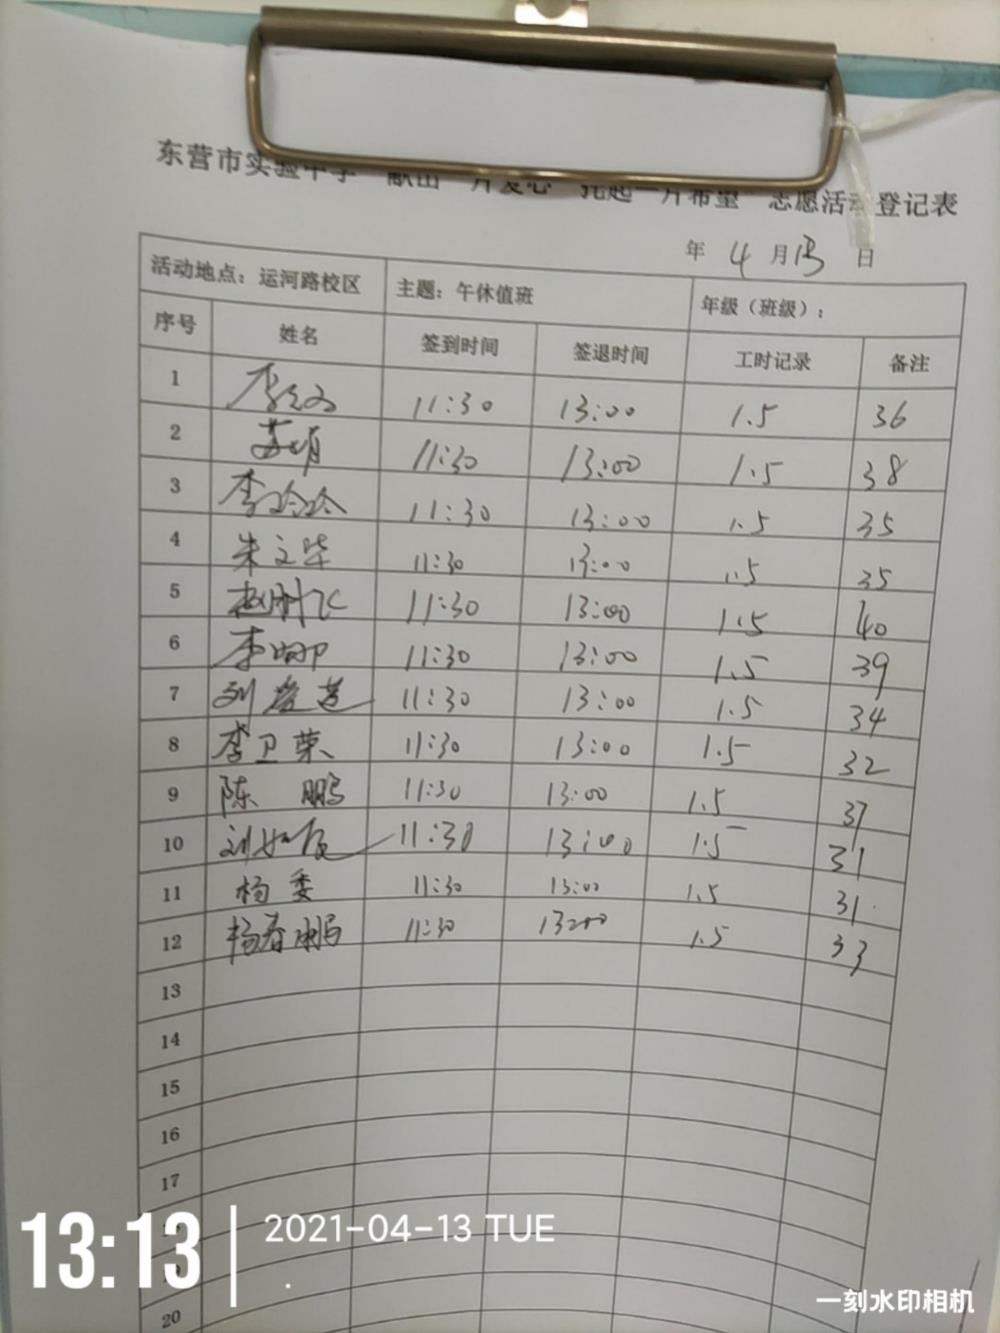 东营市实验中学"献出一片爱心 托起一片希望"志愿活动登记表
年 4 月 13 日
活动地点：运河路校区 主题：午休值班 年级（班级）：
序号 姓名 签到时间 签退时间 工时记录 备注
1 11:30 13:00 1.5 36
2 苏娟 11:30 13:00 1.5 38
3 李玲玲 11:30 13:00 1.5 35
4 朱文华 11:30 13:00 1.5 35
5 11:30 13:00 1.5 40
6 李娜 11:30 13:00 1.5 39
7 刘爱莲 11:30 13:00 1.5 34
8 李卫荣 11:30 13:00 1.5 32
9 陈鹏 11:30 13:00 1.5 37
10 11:30 13:00 1.5 31
11 杨委 11:30 13:00 1.5 31
12 杨春鹏 11:30 13:00 1.5 33
13
14
15
16
17
20
13:13 2021-04-13 TUE
一刻水印相机